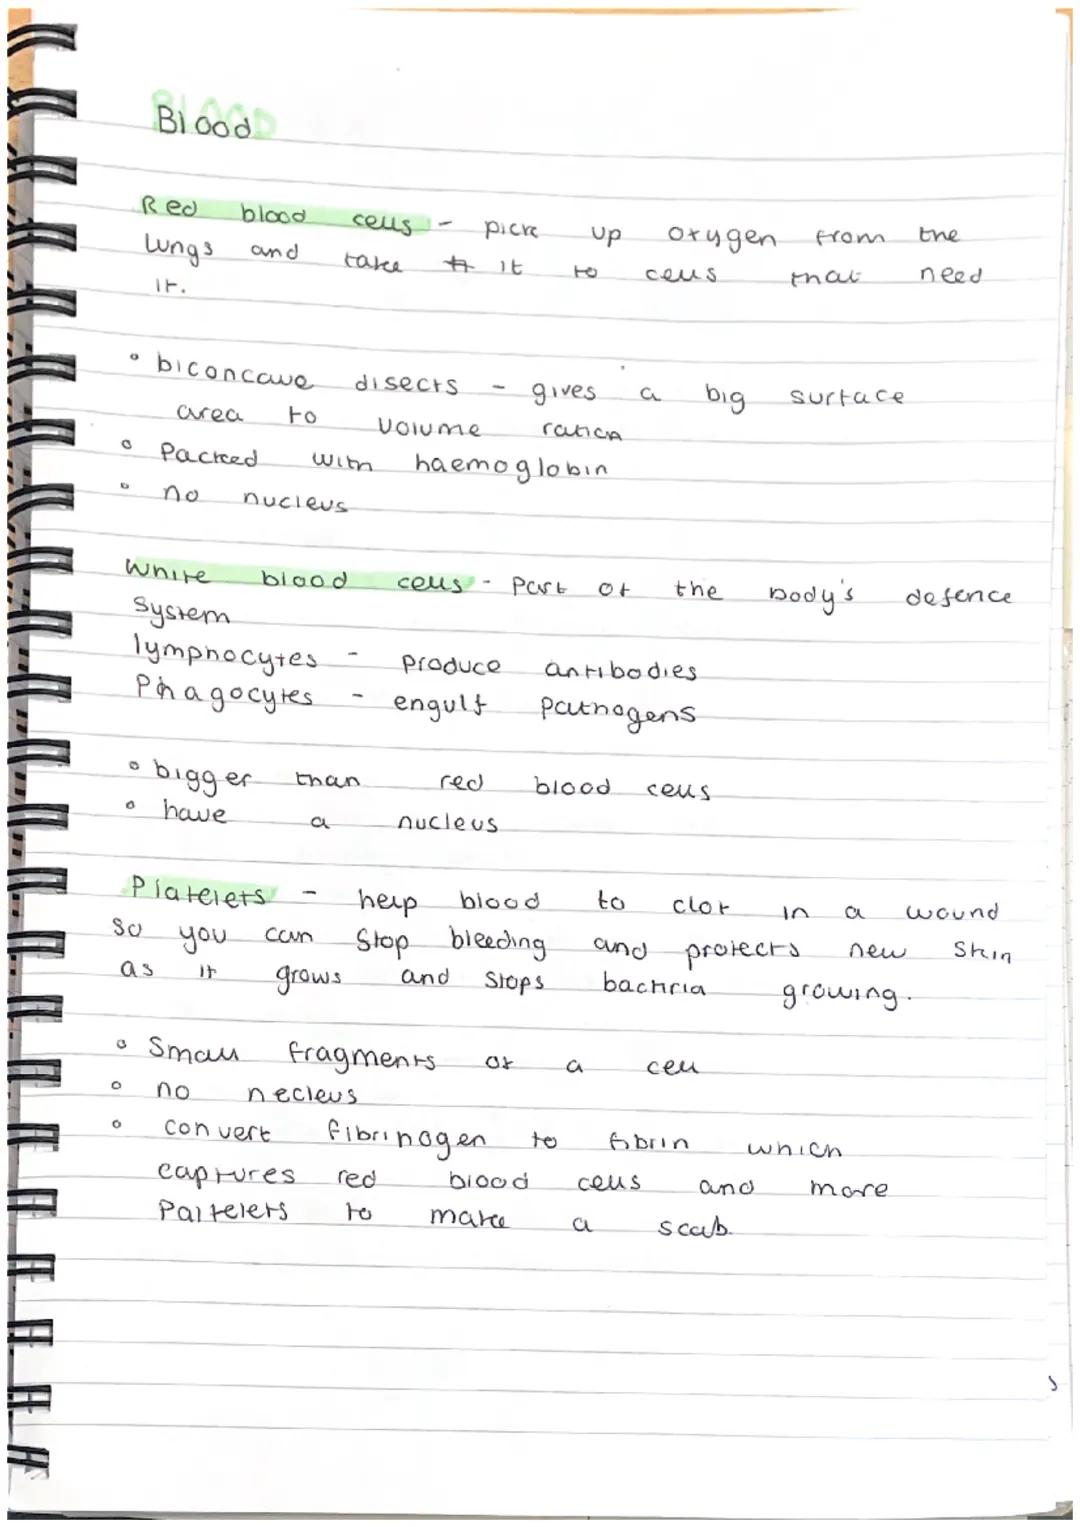 BLOOD
Blood
Red blood cells - pick up oxygen from the
lungs and take it to cells that need
it.
• biconcave disects - gives a big surface
area to volume ration
• Packed with haemoglobin
• no nucleus
White blood cells - part of the body's defence
System
lymphocytes - produce antibodies
Phagocytes - engulf pathogens
• bigger than red blood cells
• have a nucleus
Platelets - help blood to clot in a wound
so you can stop bleeding and protects new skin
as it grows and stops bactria growing.
• Small fragments of a cell
• no necleus
• convert fibrinogen to fibrin which
captures red blood cells and more
Paltelets to make a scab.